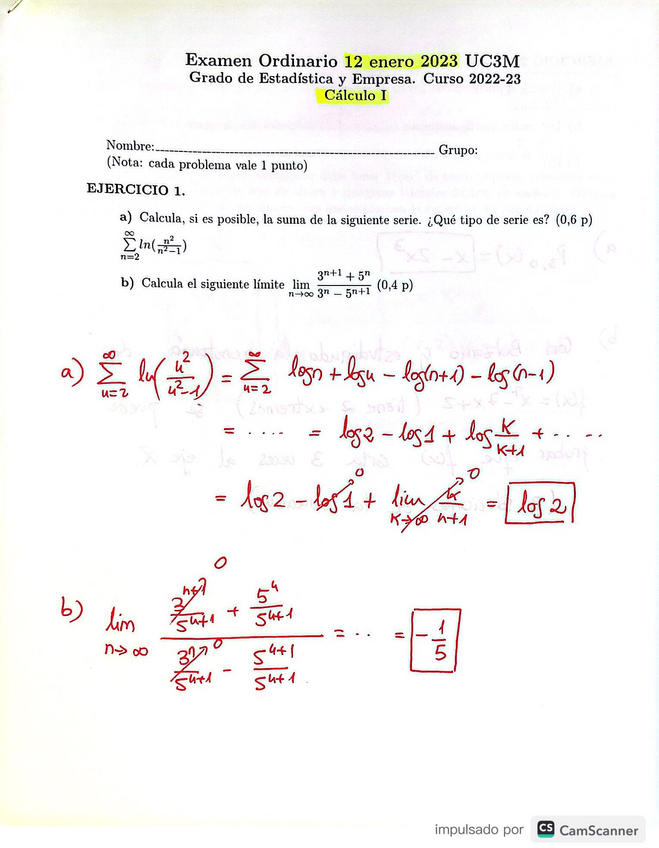 Examen Ordinario 12 enero 2023 UC3M
Grado de Estadística y Empresa. Curso 2022-23
Cálculo I
Nombre: Grupo:
(Nota: cada problema vale 1 punto)
EJERCICIO 1.
a) Calcula, si es posible, la suma de la siguiente serie. ¿Qué tipo de serie es? (0,6 p)
∑_{n=2}^{∞} ln(n²/(n²−1))
b) Calcula el siguiente límite lim_{n→∞} (3^{n+1} + 5^n)/(3^n − 5^{n+1}) (0,4 p)
a) ∑_{n=2}^{∞} ln(n²/(n²−1)) = ∑_{n=2}^{∞} log n + log n − log(n+1) − log(n−1)
= .... = log 2 − log 1 + log k/(k+1) + .....
= log 2 − log 1 → 0 + lim_{k→∞} k/(n+1) → 0 = log 2
b) lim_{n→∞} (3^{n+1}/5^{n+1} → 0 + 5^n/5^{n+1})/(3^n/5^{n+1} → 0 − 5^{n+1}/5^{n+1}) = .. = −1/5
impulsado por CS CamScanner